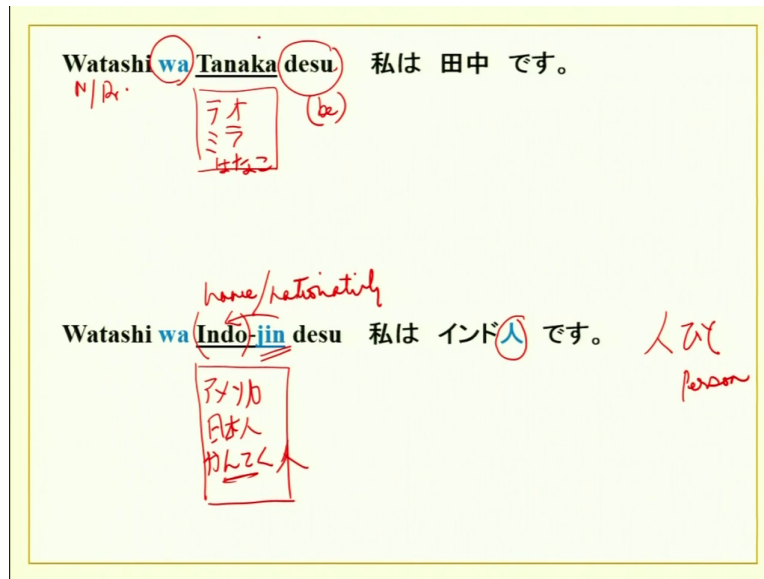 Watashi wa Tanaka desu 私は 田中 です。
N/Pr.
(be)
ラオ
ミラ
はなこ
name/nationatily
Watashi wa Indo-jin desu 私は インド人 です。
人 ひと
Person
アメリカ
日本人
かんこく人